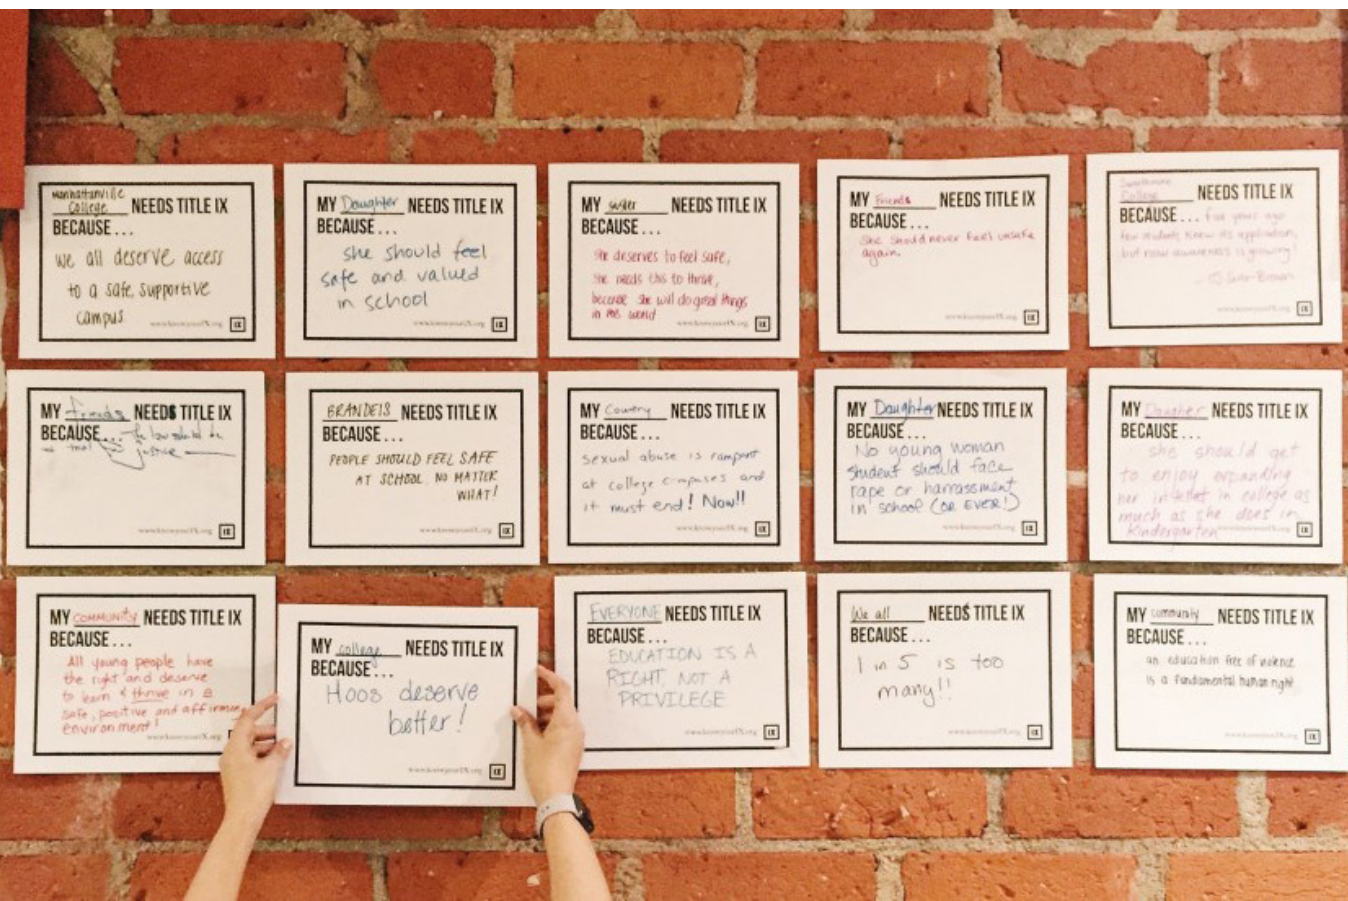 Manhattanville
College NEEDS TITLE IX
BECAUSE...
we all deserve access
to a safe, supportive
campus
www.knowyourIX.org IX
MY Daughter NEEDS TITLE IX
BECAUSE...
she should feel
safe and valued
in school
www.knowyourIX.org IX
MY sister NEEDS TITLE IX
BECAUSE...
she deserves to feel safe,
she needs this to thrive,
because she will do great things
in this world
www.knowyourIX.org IX
MY Friends NEEDS TITLE IX
BECAUSE...
she should never feel unsafe
again.
www.knowyourIX.org IX
Swarthmore
College NEEDS TITLE IX
BECAUSE... five years ago
few students knew its application,
but now awareness is growing!
www.knowyourIX.org IX
MY friends NEEDS TITLE IX
BECAUSE... The law should be
justice
www.knowyourIX.org IX
BRANDEIS NEEDS TITLE IX
BECAUSE...
PEOPLE SHOULD FEEL SAFE
AT SCHOOL, NO MATTER
WHAT!
www.knowyourIX.org IX
MY Country NEEDS TITLE IX
BECAUSE...
sexual abuse is rampant
at college campuses and
it must end! Now!!
www.knowyourIX.org IX
MY Daughter NEEDS TITLE IX
BECAUSE...
No young woman
student should face
rape or harrassment
in school (OR EVER!)
www.knowyourIX.org IX
MY Daughter NEEDS TITLE IX
BECAUSE...
she should get
to enjoy expanding
her interest in college as
much as she does in
Kindergarten
www.knowyourIX.org IX
MY COMMUNITY NEEDS TITLE IX
BECAUSE...
All young people have
the right and deserve
to learn & thrive in a
safe, positive and affirming
environment!
www.knowyourIX.org
MY college NEEDS TITLE IX
BECAUSE...
Hoos deserve
better!
www.knowyourIX.org IX
EVERYONE NEEDS TITLE IX
BECAUSE...
EDUCATION IS A
RIGHT, NOT A
PRIVILEGE
www.knowyourIX.org IX
We all NEED TITLE IX
BECAUSE...
1 in 5 is too
many!!
www.knowyourIX.org IX
MY community NEEDS TITLE IX
BECAUSE...
an education free of violence
is a fundamental human right
www.knowyourIX.org IX